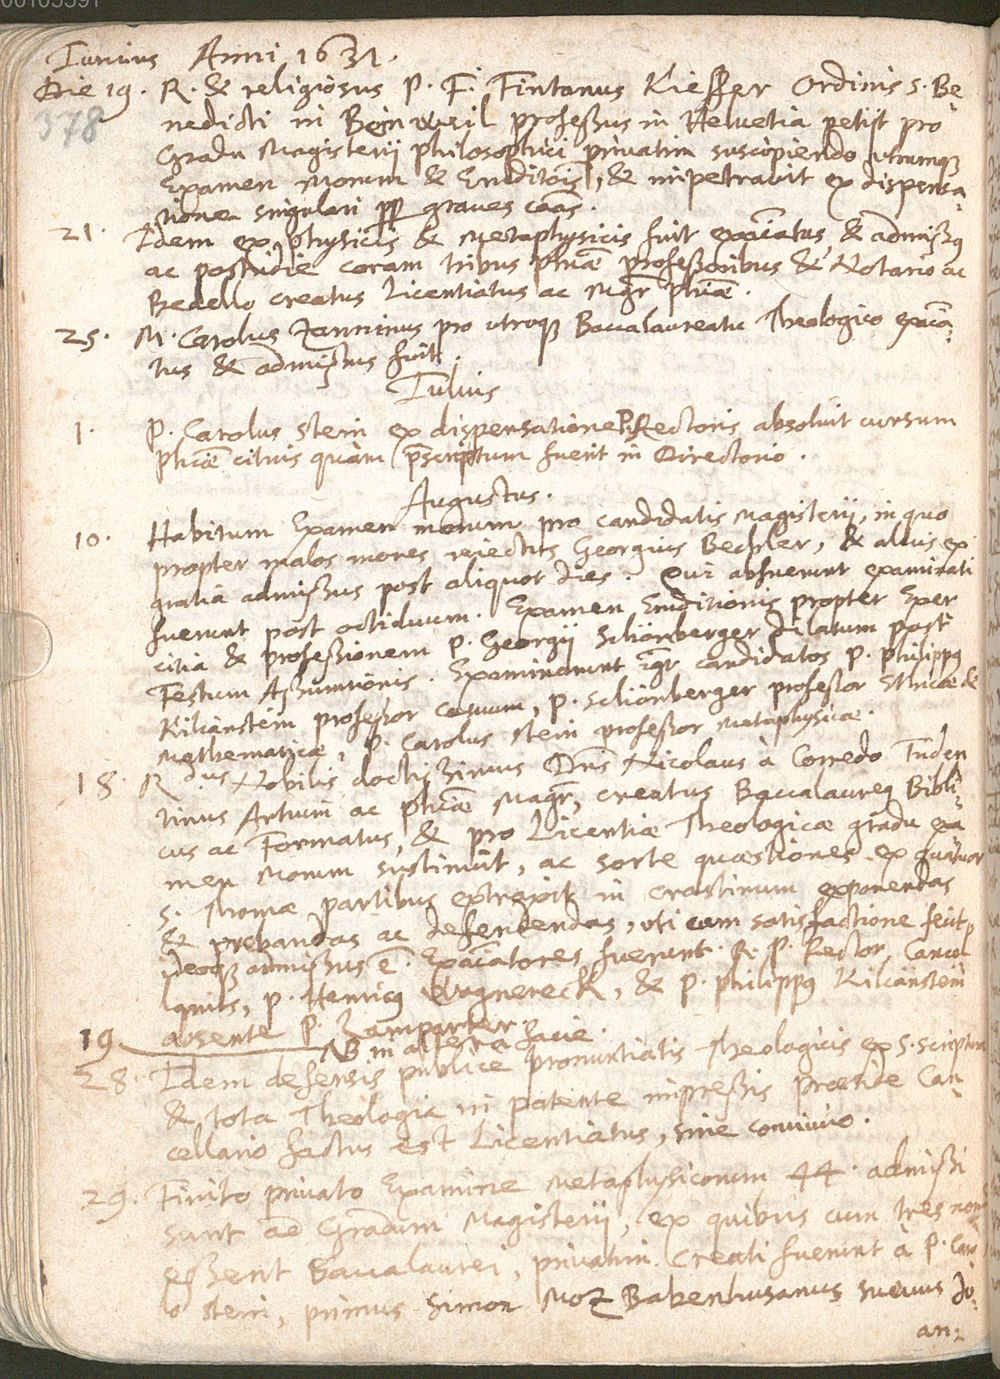 00105591
Iunius Anni 1631.
Die 19. R. & religiosus P. F. Fintanus Kieffer Ordinis S. Be-
378
nedicti in Beinweil professus in Helvetia petijt pro
Gradu Magisterij philosophici privatim suscipiendo utrumq
Examen Morum & Erudit̃ois, & impetravit ex dispensa-
tione singulari pp graves cãas.
21. Idem ex physicis & Metaphysicis fuit exãiatus, & admissq
ac postridie coram tribus phiæ professoribus & Notario ac
Bedello creatus Licentiatus ac Mgr phiæ.
25. M. Carolus Janninus pro utroq Baccalaureatu Theologico exãia-
tus & admissus fuit.
Iulius
1. P. Carolus Stein ex dispensatione P. Rectoris absoluit cursum
phiæ citius quàm p̃scriptum fuerit in Directorio.
Augustus.
10. Habitum Examen morum pro candidatis Magisterij, in quo
propter malos mores reiectus Georgius Bechler, & alius ex
gratia admissus post aliquot dies. Qui abfuerunt examinati
fuerunt post octiduum. Examen Eruditionis propter Exer
citia & professionem P. Georgij Schönberger dilatum post
Festum Assumtionis. Examinarunt igr candidatos P. Philippq
Kilianstein professor casuum, P. Schönberger professor Ethicæ &
Mathematicæ, P. Carolus Stein professor Metaphysicæ.
18. R dus Nobilis doctissimus Dñs Nicolaus à Corredo Tuden
tinus Artium ac phiæ Magr, creatus Baccalaureq Bibli-
cus ac Formatus, & pro Licentiæ Theologicæ gradu exa
men Morum sustinuit, ac sorte quæstiones ex quatuor
S. Thomæ partibus extraxit in crastinum exponendas
& probandas ac defendendas, uti cum satisfactione fecit,
ideoq admissus ẽ. Exãiatores fuerunt R. P. Rector, Cancel
larius, P. Henricq Wagnereck, & P. Philippq Kilianstein
absente P. Lamparter.
19 NB in altera facie.
28. Idem defensis publicè pronuntiatis Theologicis ex S. Scriptura
& tota Theologia in patente impressis Præside Can-
cellario factus est Licentiatus, sine convivio.
29. Finito privato Examine Metaphysicorum 44. admissi
sunt ad Gradum Magisterij, ex quibus cum tres non
essent Baccalaurei, privatim creati fuerunt à P. Caro
lo Stein, primus Simon Moz Babenhusanus Suevus Jo-
an: